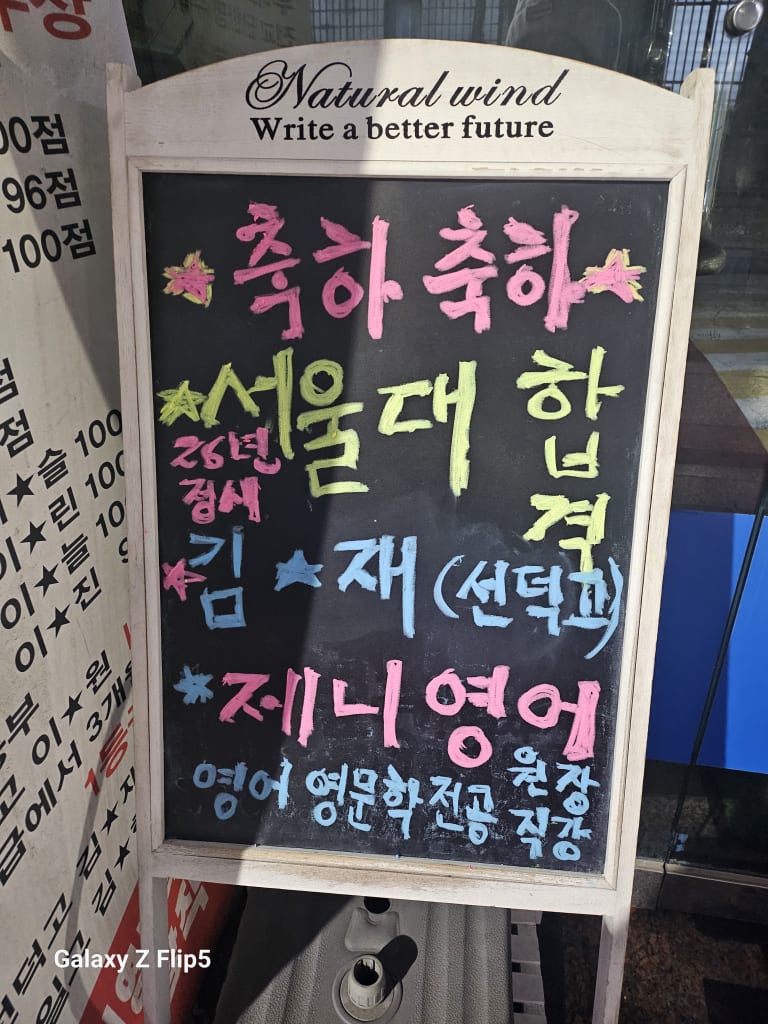 Natural wind
Write a better future
★축하 축하★
★서울대 합격
26년
정시
★김★재 (선덕고)
*제니영어
영어 영문학 전공 원장
직강
00점
96점
100점
점
점
★슬 100
이★린 100
이★늘 10
이★진 9
이★원
급에서 3개
Galaxy Z Flip5